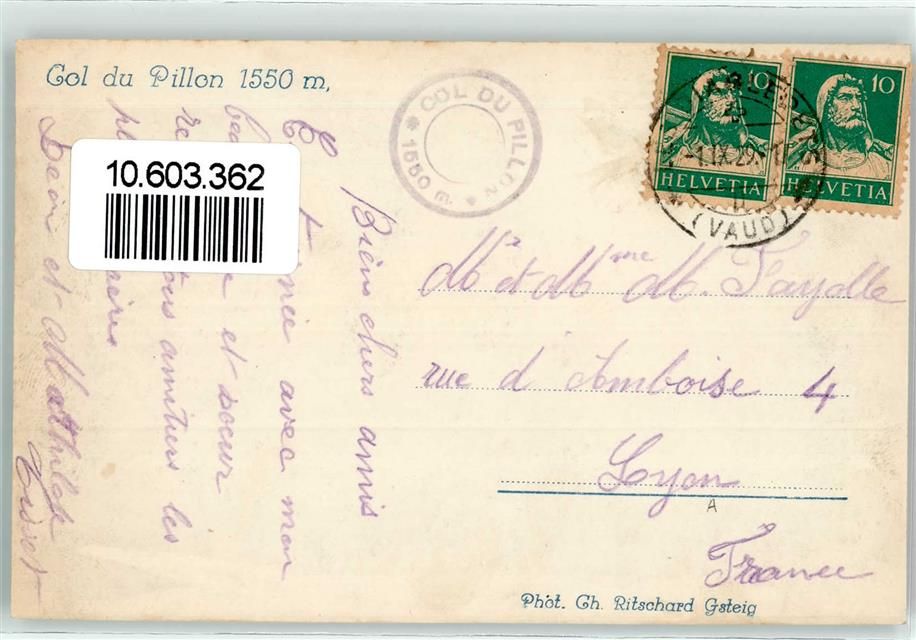 Col du Pillon 1550 m,
10.603.362
COL DU PILLON
1550 m.
10
HELVETIA
10
HELVETIA
(VAUD)
Mr et Mme M. Fayolle
rue d'Amboise 4
Lyon
A
France
Biens chers amis
avec mon
et soeur
amitiers les
Léon et Mathilde
Phot. Ch. Ritschard Gsteig